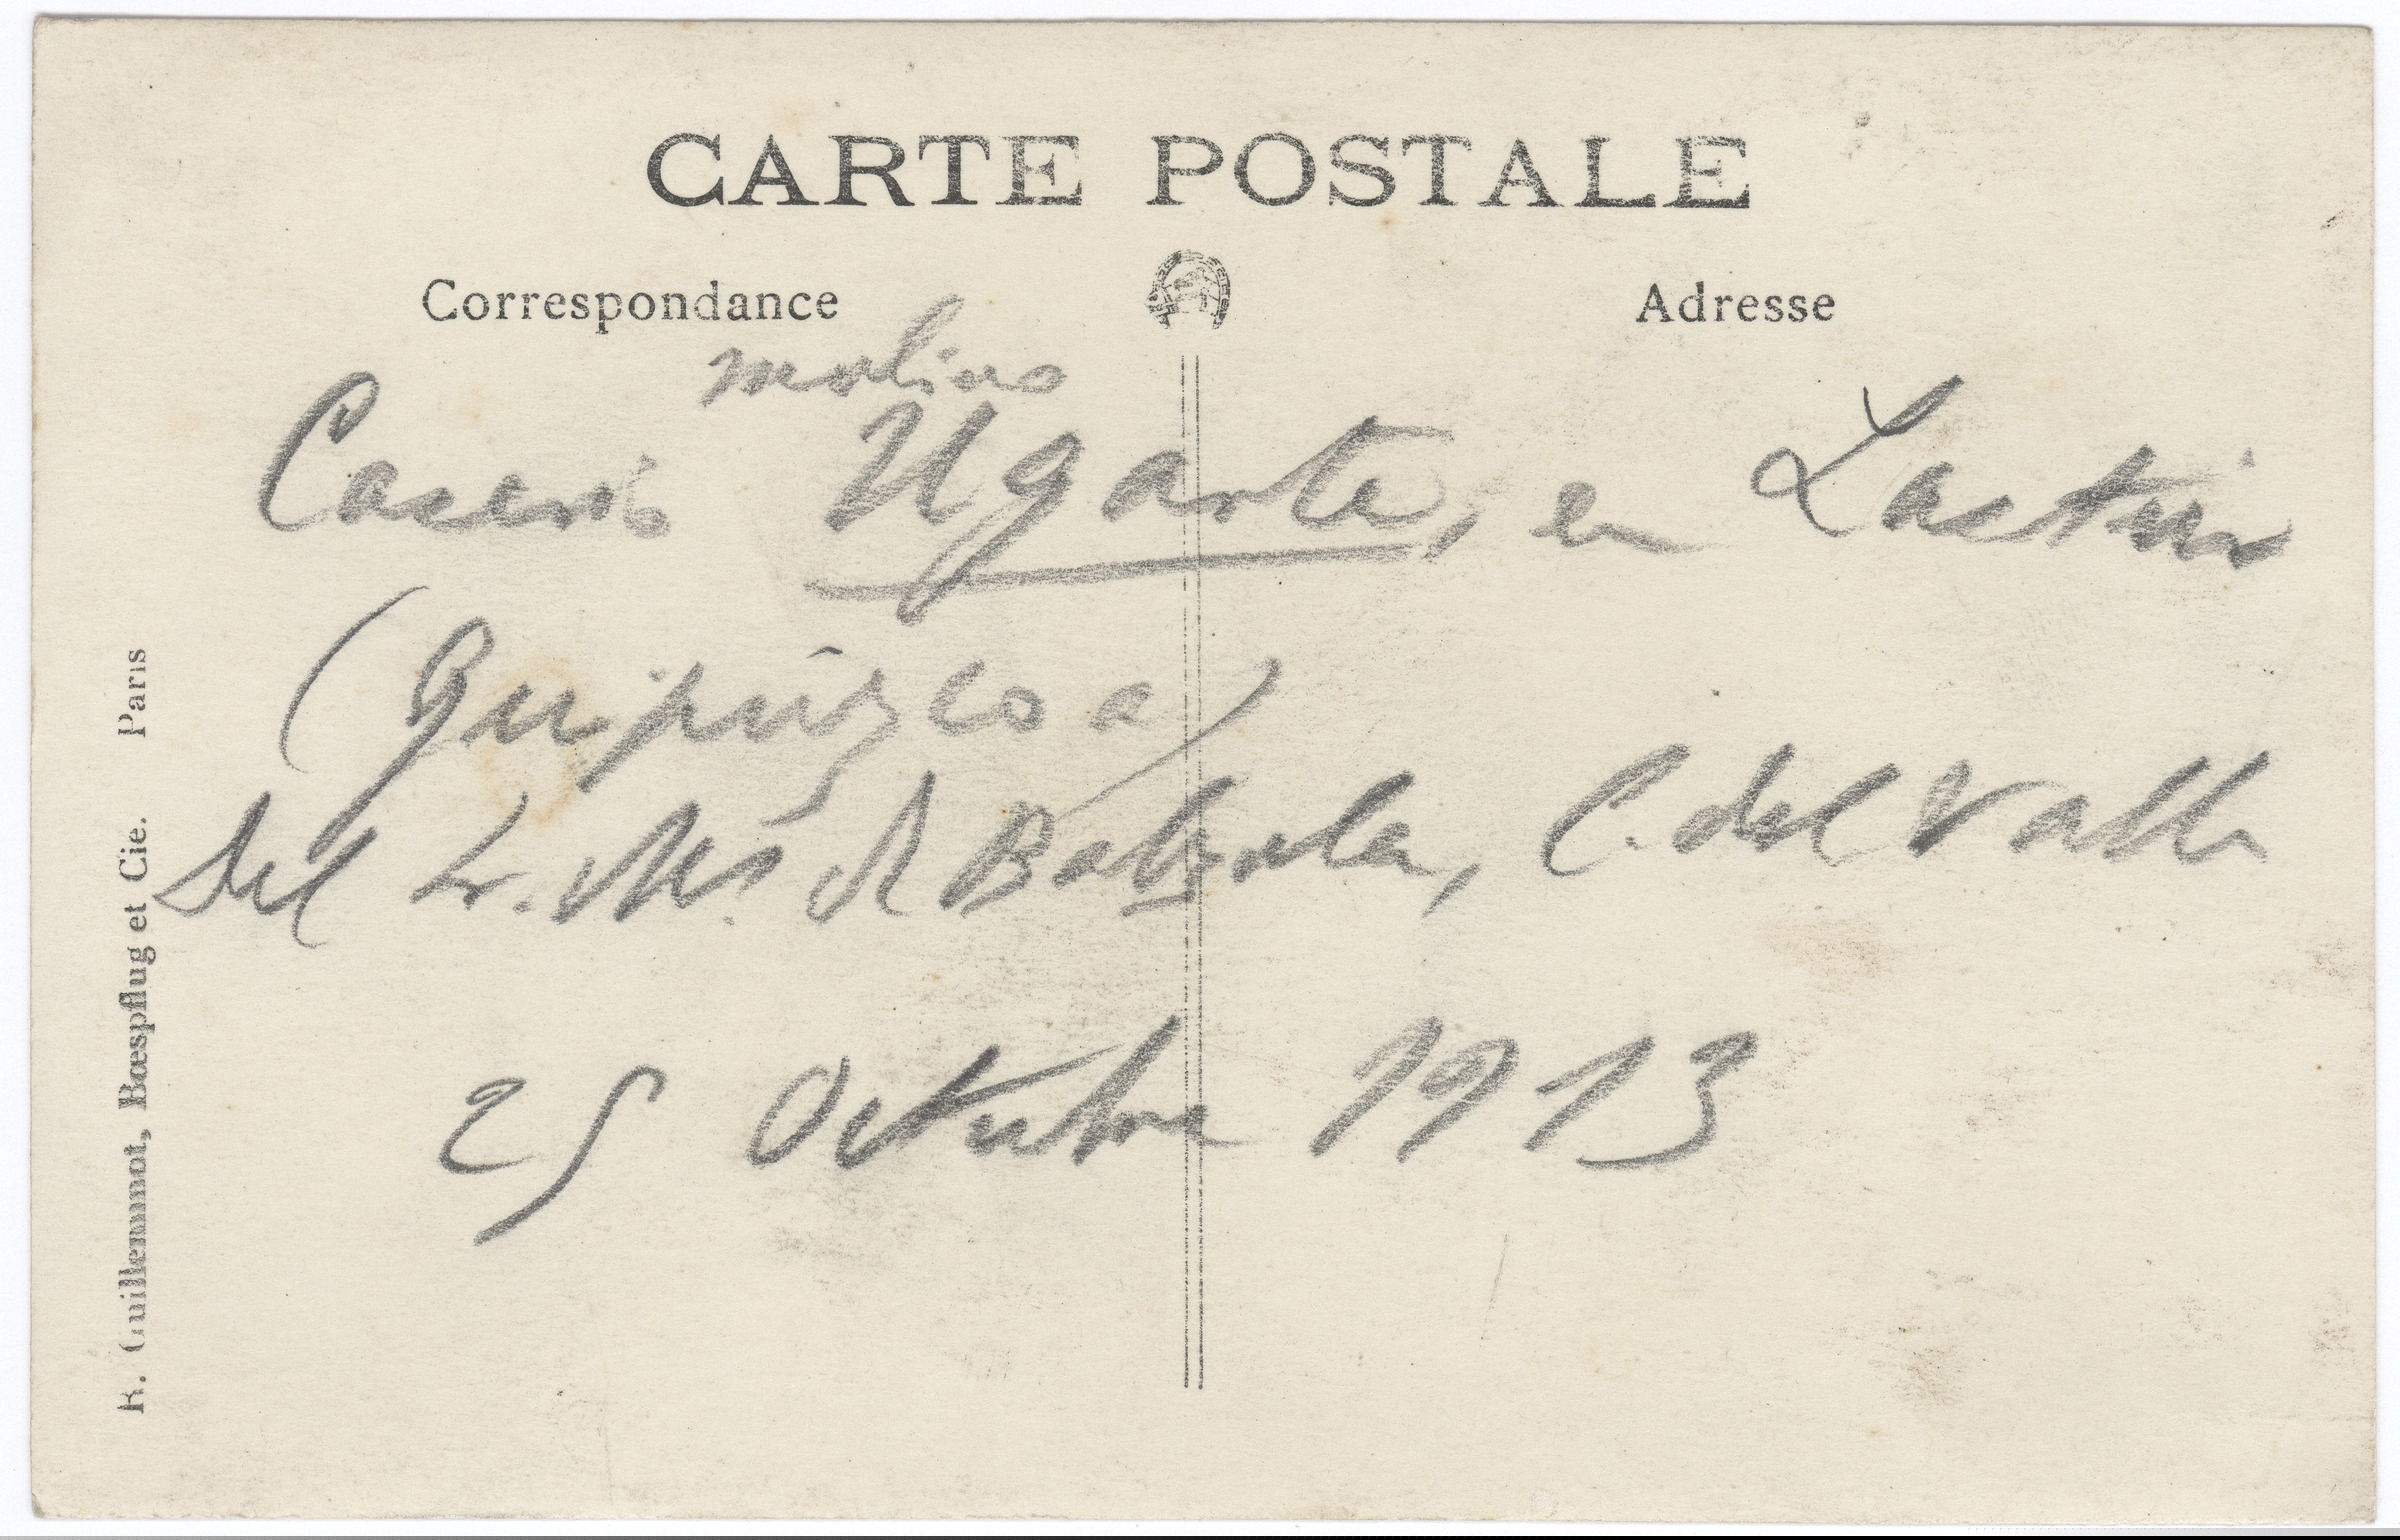 CARTE POSTALE
Correspondance
Adresse
molino
Caserío Ugarte, en Lastur
(Guipúzcoa)
Del Sr. de Batzola, C. del Valle
25 Octubre 1913
R. Guilleminot, Bœspflug et Cie. Paris